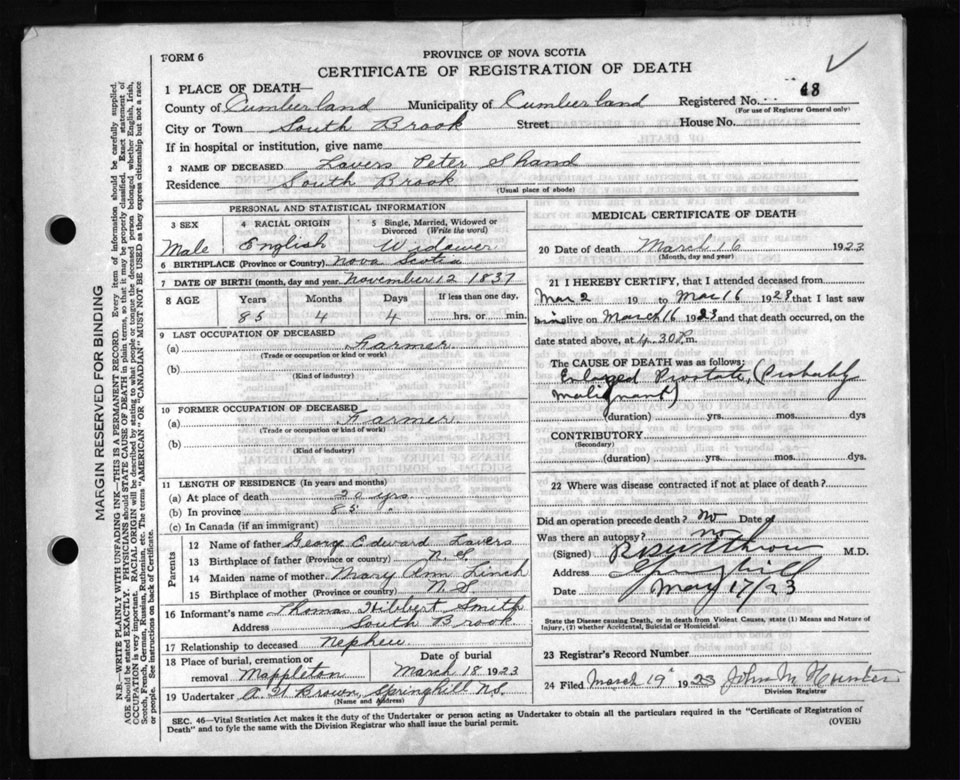 FORM 6
PROVINCE OF NOVA SCOTIA
CERTIFICATE OF REGISTRATION OF DEATH
1 PLACE OF DEATH—
County of Cumberland Municipality of Cumberland Registered No. 48
(For use of Registrar General only)
City or Town South Brook Street House No.
If in hospital or institution, give name
2 NAME OF DECEASED Lavers Peter Shand
Residence South Brook
(Usual place of abode)
PERSONAL AND STATISTICAL INFORMATION
3 SEX 4 RACIAL ORIGIN 5 Single, Married, Widowed or Divorced (Write the word)
Male English Widower
6 BIRTHPLACE (Province or Country) Nova Scotia
7 DATE OF BIRTH (month, day and year) November 12 1837
8 AGE Years Months Days If less than one day,
85 4 4 hrs. or min.
9 LAST OCCUPATION OF DECEASED
(a) Farmer
(Trade or occupation or kind or work)
(b)
(Kind of industry)
10 FORMER OCCUPATION OF DECEASED
(a) Farmer
(Trade or occupation or kind of work)
(b)
(Kind of industry)
11 LENGTH OF RESIDENCE (In years and months)
(a) At place of death 20 yrs
(b) In province 85 "
(c) In Canada (if an immigrant)
Parents
12 Name of father George Edward Lavers
13 Birthplace of father (Prov. or country) N.S.
14 Maiden name of mother Mary Ann Linch
15 Birthplace of mother (Province or country) N S
16 Informant's name Thomas Hibbert Smith
Address South Brook
17 Relationship to deceased Nephew
18 Place of burial, cremation or removal Mappleton Date of burial March 18 1923
19 Undertaker A. H Brown, Springhill N.S.
(Name and Address)
MEDICAL CERTIFICATE OF DEATH
20 Date of death March 16 1923
(Month, day and year)
21 I HEREBY CERTIFY, that I attended deceased from
Mar 2 19 to Mar 16 1923 that I last saw
him alive on March 16 1923 and that death occurred, on the
date stated above, at 4.30 P.m.
The CAUSE OF DEATH was as follows:
Enlarged Prostate, (Probably
Malignant)
(duration) yrs. mos. dys
CONTRIBUTORY
(Secondary)
(duration) yrs. mos. dys.
22 Where was disease contracted if not at place of death?
Did an operation precede death? no Date of
Was there an autopsy? no
(Signed) M.D.
Address Springhill
Date May 17/23
State the Disease causing Death, or in death from Violent Causes, state (1) Means and Nature of Injury, (2) whether Accidental, Suicidal or Homicidal.
23 Registrar's Record Number
24 Filed March 19 1923 John M Hunter
Division Registrar
SEC. 46—Vital Statistics Act makes it the duty of the Undertaker or person acting as Undertaker to obtain all the particulars required in the "Certificate of Registration of
Death" and to fyle the same with the Division Registrar who shall issue the burial permit. (OVER)
MARGIN RESERVED FOR BINDING
N.B.—WRITE PLAINLY WITH UNFADING INK—THIS IS A PERMANENT RECORD. Every item of information should be carefully supplied.
AGE should be stated EXACTLY. PHYSICIANS should STATE CAUSE OF DEATH in plain terms, so that it may be properly classified. Exact statement of
OCCUPATION is very important. RACIAL ORIGIN will be described by stating to what people or tongue the deceased person belonged whether English, Irish,
Scotch, French, German, Russian, Ruthenian, etc. The terms "AMERICAN" OR "CANADIAN" MUST NOT BE USED as they express citizenship but not a race
or people. See instructions on back of Certificate.